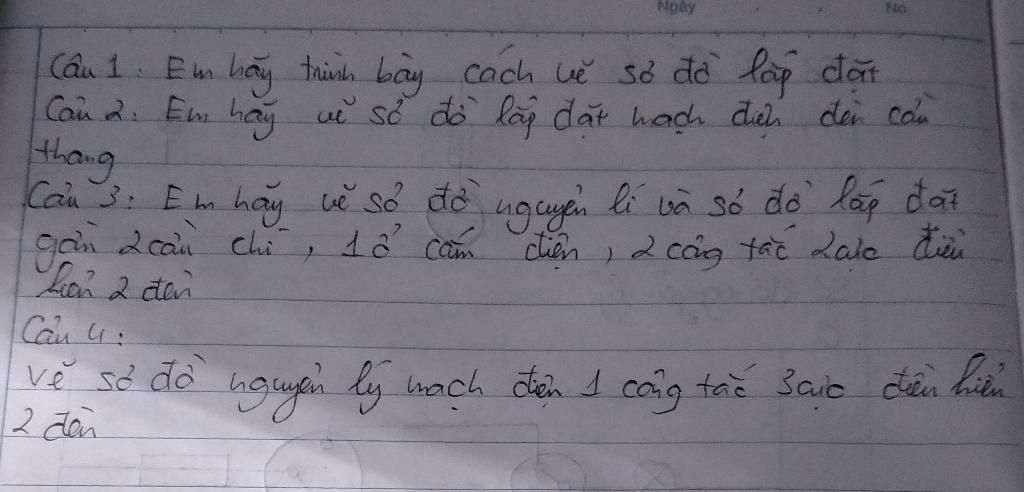 Ngày
No
Câu 1. Em hãy trình bày cách vẽ sơ đồ lắp đặt
Câu 2. Em hãy vẽ sơ đồ lắp đặt mạch điện đèn cầu
thang
Câu 3: Em hãy vẽ sơ đồ nguyên lí và sơ đồ lắp đặt
gồm 2 cầu chì, 1 ổ cắm điện, 2 công tắc 2 cực điều
kiển 2 đèn
Câu 4:
Vẽ sơ đồ nguyên lý mạch điện 1 công tắc 3 cực điều kiển
2 đèn